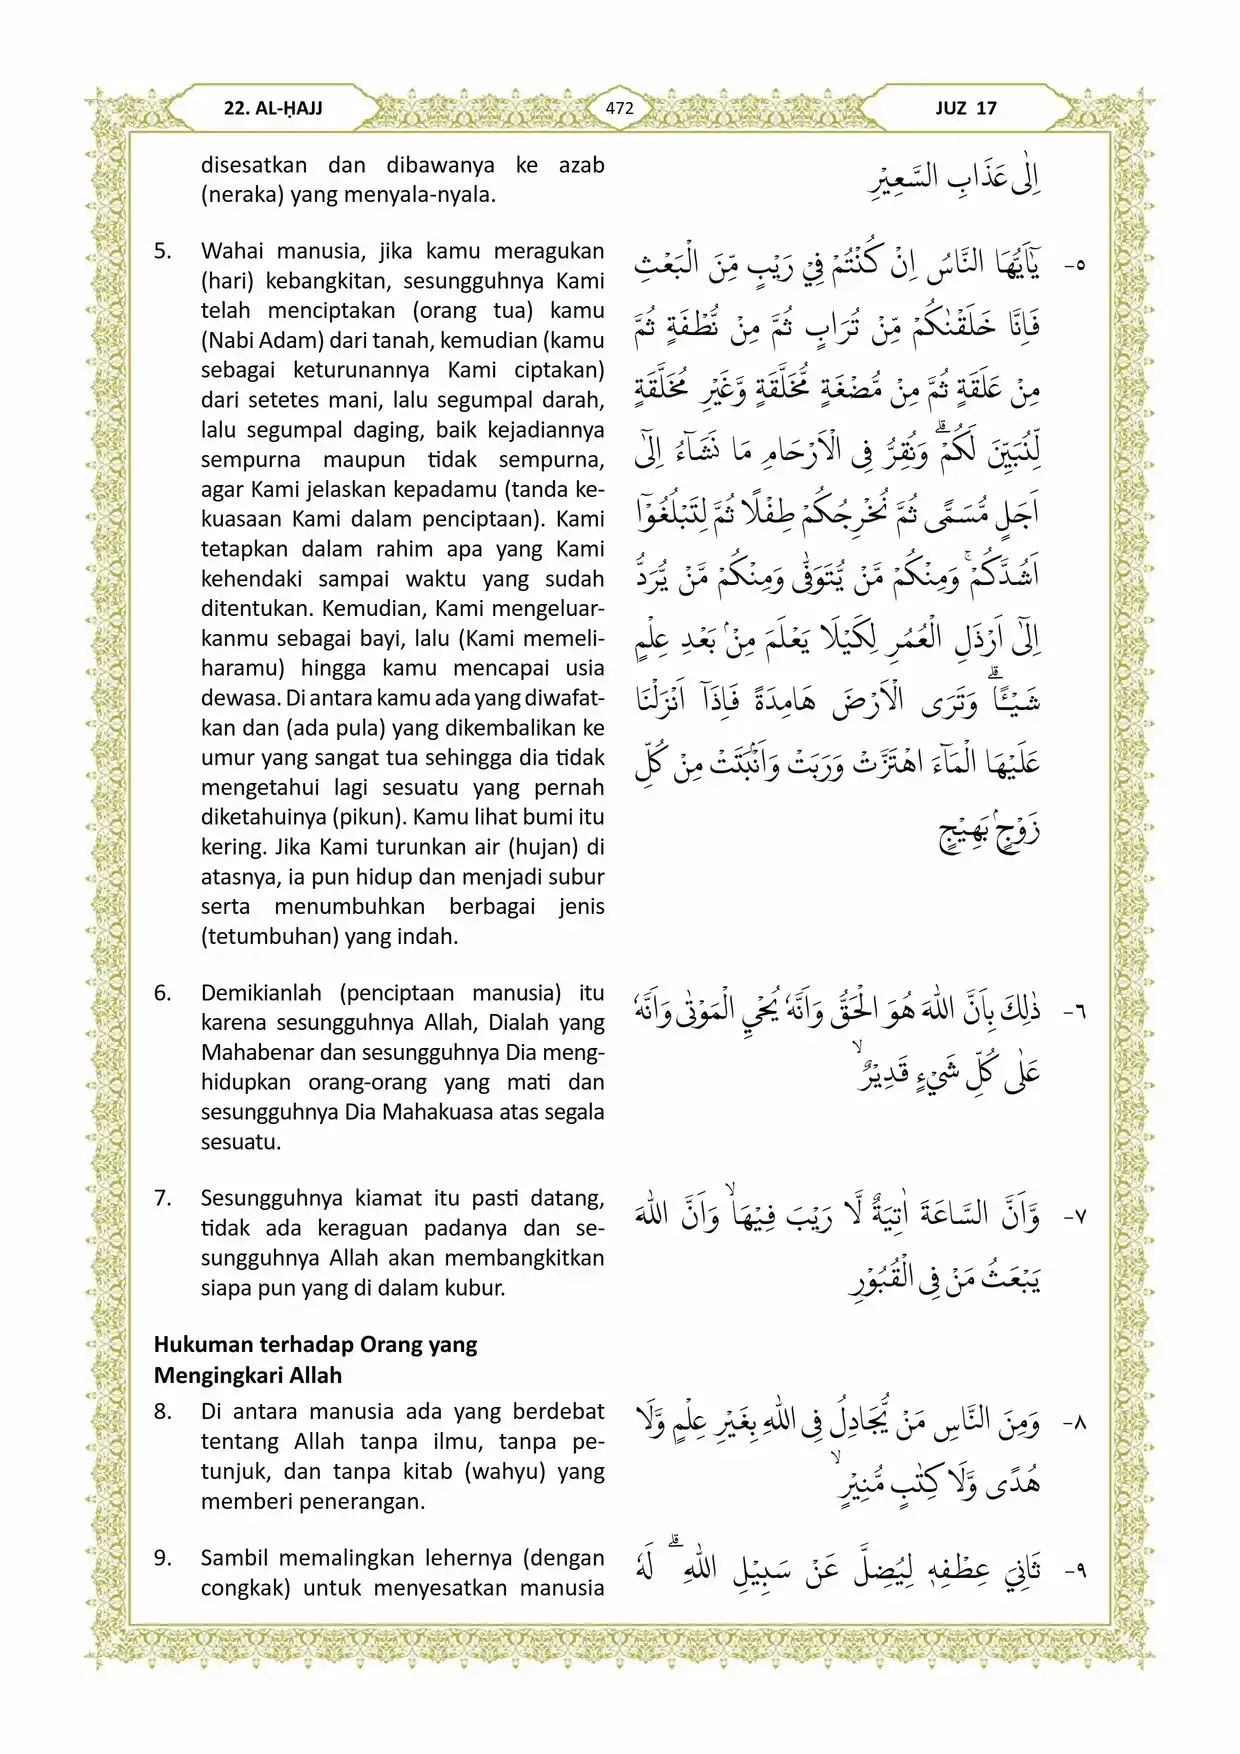 22. AL-ḤAJJ
472
JUZ 17
disesatkan dan dibawanya ke azab
(neraka) yang menyala-nyala.
اِلٰى عَذَابِ السَّعِيْرِ
5. Wahai manusia, jika kamu meragukan
(hari) kebangkitan, sesungguhnya Kami
telah menciptakan (orang tua) kamu
(Nabi Adam) dari tanah, kemudian (kamu
sebagai keturunannya Kami ciptakan)
dari setetes mani, lalu segumpal darah,
lalu segumpal daging, baik kejadiannya
sempurna maupun tidak sempurna,
agar Kami jelaskan kepadamu (tanda ke-
kuasaan Kami dalam penciptaan). Kami
tetapkan dalam rahim apa yang Kami
kehendaki sampai waktu yang sudah
ditentukan. Kemudian, Kami mengeluar-
kanmu sebagai bayi, lalu (Kami memeli-
haramu) hingga kamu mencapai usia
dewasa. Di antara kamu ada yang diwafat-
kan dan (ada pula) yang dikembalikan ke
umur yang sangat tua sehingga dia tidak
mengetahui lagi sesuatu yang pernah
diketahuinya (pikun). Kamu lihat bumi itu
kering. Jika Kami turunkan air (hujan) di
atasnya, ia pun hidup dan menjadi subur
serta menumbuhkan berbagai jenis
(tetumbuhan) yang indah.
٥- يٰٓاَيُّهَا النَّاسُ اِنْ كُنْتُمْ فِيْ رَيْبٍ مِّنَ الْبَعْثِ
فَاِنَّا خَلَقْنٰكُمْ مِّنْ تُرَابٍ ثُمَّ مِنْ نُّطْفَةٍ ثُمَّ
مِنْ عَلَقَةٍ ثُمَّ مِنْ مُّضْغَةٍ مُّخَلَّقَةٍ وَّغَيْرِ مُخَلَّقَةٍ
لِّنُبَيِّنَ لَكُمْۗ وَنُقِرُّ فِى الْاَرْحَامِ مَا نَشَاۤءُ اِلٰٓى
اَجَلٍ مُّسَمًّى ثُمَّ نُخْرِجُكُمْ طِفْلًا ثُمَّ لِتَبْلُغُوْٓا
اَشُدَّكُمْۚ وَمِنْكُمْ مَّنْ يُّتَوَفّٰى وَمِنْكُمْ مَّنْ يُّرَدُّ
اِلٰٓى اَرْذَلِ الْعُمُرِ لِكَيْلَا يَعْلَمَ مِنْۢ بَعْدِ عِلْمٍ
شَيْـًٔاۗ وَتَرَى الْاَرْضَ هَامِدَةً فَاِذَآ اَنْزَلْنَا
عَلَيْهَا الْمَاۤءَ اهْتَزَّتْ وَرَبَتْ وَاَنْۢبَتَتْ مِنْ كُلِّ
زَوْجٍۢ بَهِيْجٍ
6. Demikianlah (penciptaan manusia) itu
karena sesungguhnya Allah, Dialah yang
Mahabenar dan sesungguhnya Dia meng-
hidupkan orang-orang yang mati dan
sesungguhnya Dia Mahakuasa atas segala
sesuatu.
٦- ذٰلِكَ بِاَنَّ اللّٰهَ هُوَ الْحَقُّ وَاَنَّهٗ يُحْيِ الْمَوْتٰى وَاَنَّهٗ
عَلٰى كُلِّ شَيْءٍ قَدِيْرٌۙ
7. Sesungguhnya kiamat itu pasti datang,
tidak ada keraguan padanya dan se-
sungguhnya Allah akan membangkitkan
siapa pun yang di dalam kubur.
٧- وَّاَنَّ السَّاعَةَ اٰتِيَةٌ لَّا رَيْبَ فِيْهَاۙ وَاَنَّ اللّٰهَ
يَبْعَثُ مَنْ فِى الْقُبُوْرِ
Hukuman terhadap Orang yang
Mengingkari Allah
8. Di antara manusia ada yang berdebat
tentang Allah tanpa ilmu, tanpa pe-
tunjuk, dan tanpa kitab (wahyu) yang
memberi penerangan.
٨- وَمِنَ النَّاسِ مَنْ يُّجَادِلُ فِى اللّٰهِ بِغَيْرِ عِلْمٍ وَّلَا
هُدًى وَّلَا كِتٰبٍ مُّنِيْرٍۙ
9. Sambil memalingkan lehernya (dengan
congkak) untuk menyesatkan manusia
٩- ثَانِيَ عِطْفِهٖ لِيُضِلَّ عَنْ سَبِيْلِ اللّٰهِ ۗ لَهٗ